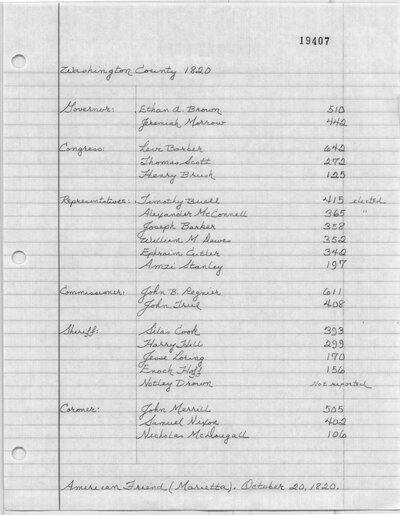 19407
Washington County 1820
Governor: Ethan A. Brown 510
Jeremiah Morrow 442
Congress: Levi Barber 642
Thomas Scott 272
Henry Brush 125
Representatives: Timothy Buell 415 elected
Alexander McConnell 365 "
Joseph Barker 358
William M. Dawes 352
Ephraim Cutler 342
Amzi Stanley 197
Commissioner: John B. Regnier 611
John True 408
Sheriff: Silas Cook 393
Harry Hill 299
Jesse Loring 170
Enoch Hoff 156
Notley Drown Not reported
Coroner: John Merrill 505
Samuel Nixon 402
Nicholas McDougall 106
American Friend (Marietta). October 20, 1820.